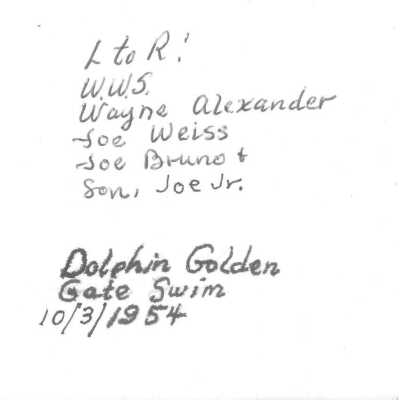 L to R:
W.W.S.
Wayne Alexander
Joe Weiss
Joe Bruno +
Son, Joe Jr.
Dolphin Golden
Gate Swim
10/3/1954